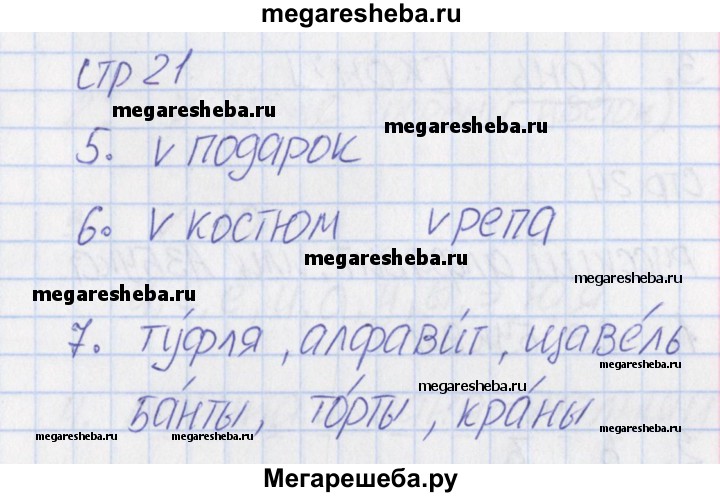 megaresheba.ru
стр 21
megaresheba.ru
megaresheba.ru
5. v подарок
6. v костюм v репа
megaresheba.ru
megaresheba.ru
megaresheba.ru
7. ту́фля, алфави́т, щаве́ль
megaresheba.ru
ба́нты, то́рты, кра́ны
megaresheba.ru megaresheba.ru megaresheba.ru
Мегарешеба.ру